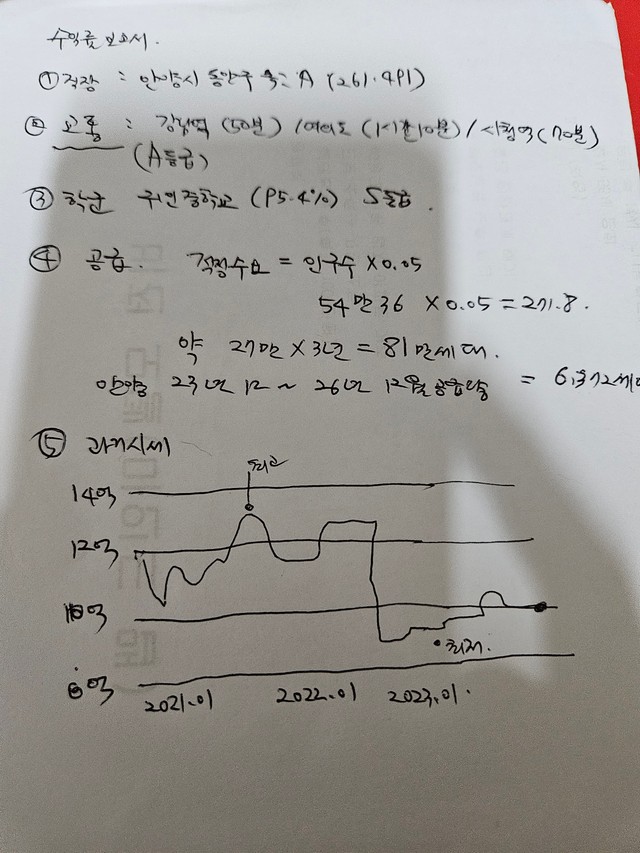 수익률 보고서.
① 직장 : 안양시 동안구 A (261.491)
② 교통 : 강남역 (50분) / 여의도 (1시간10분) / 시청역 (70분)
(A등급)
③ 학군 귀인중학교 (95.4%) S등급.
④ 공급. 적정수요 = 인구수 X 0.05
54만 36 X 0.05 = 271.8.
약 27만 X 3년 = 81만세대.
23년 12 ~ 26년 12월 공급물량 =
⑤ 과거시세
최고
14억
12억
10억
최저.
8억
2021.01 2022.01 2023.01.